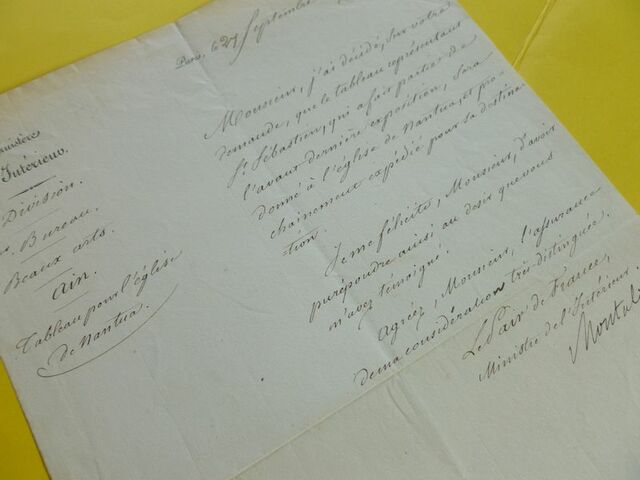 Paris, le 27 Septembre
Ministère
Intérieur.
Division.
Bureau.
Beaux arts.
Ain.
Tableau pour l'église
de Nantua.
Monsieur, j'ai décidé, sur votre
demande, que le tableau représentant
St. Sébastien, qui a fait partie de
l'avant dernière exposition, sera
donné à l'église de Nantua, et pro
chainement expédié pour sa destina
tion.
Je me félicite, Monsieur, d'avoir
pu répondre ainsi au desir que vous
m'avez témoigné.
Agréez, Monsieur, l'assurance
de ma considération très distinguée.
Le Pair de France,
Ministre de l'Intérieur.